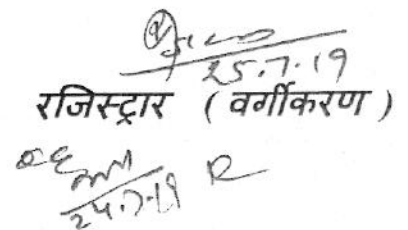 25.7.19
रजिस्ट्रार (वर्गीकरण)
24.7.19 R